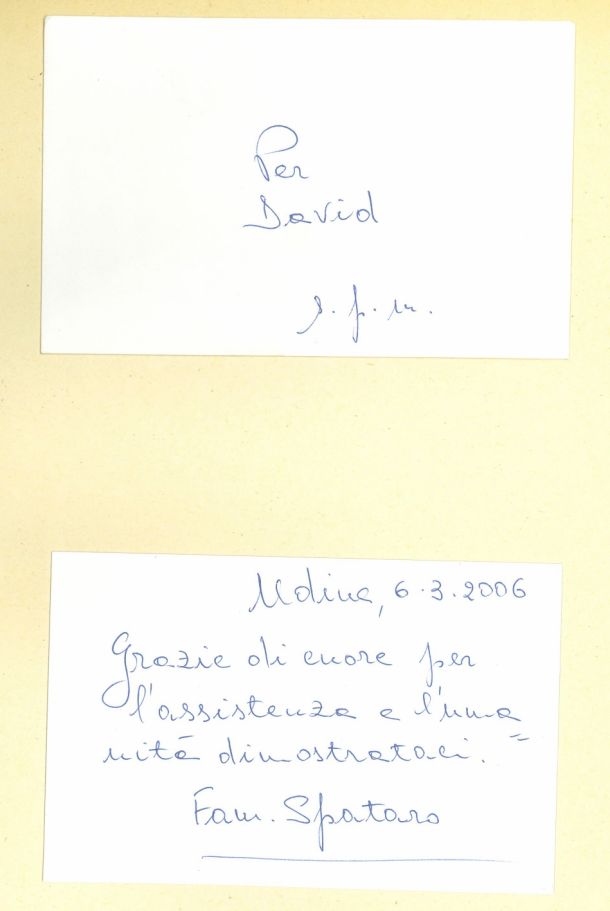 Per
David
s.p.m.
Udine, 6.3.2006
Grazie di cuore per
l'assistenza e l'uma=
nità dimostrataci.
Fam. Spataro